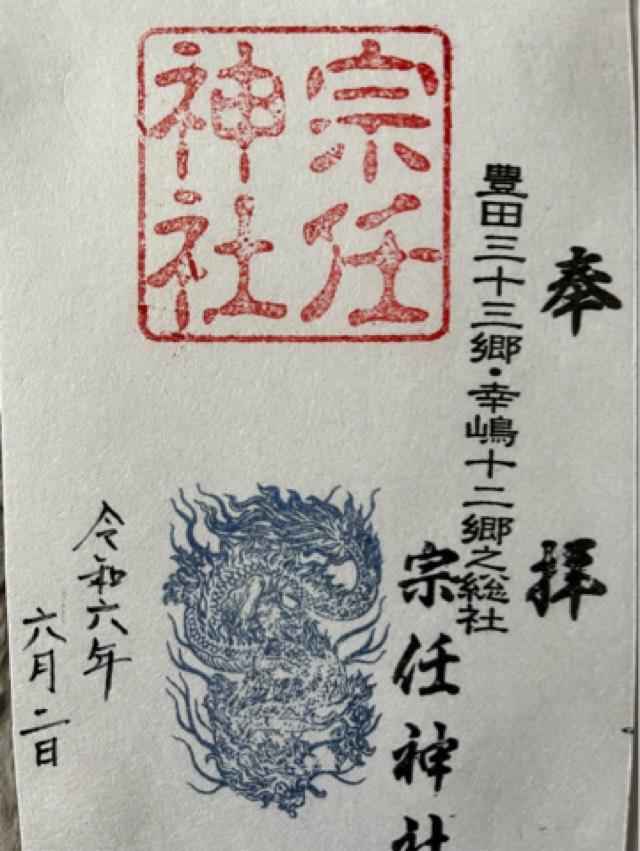 奉拝
豊田三十三郷・幸嶋十二郷之総社
宗任神社
宗任
神社
令和六年
六月二日